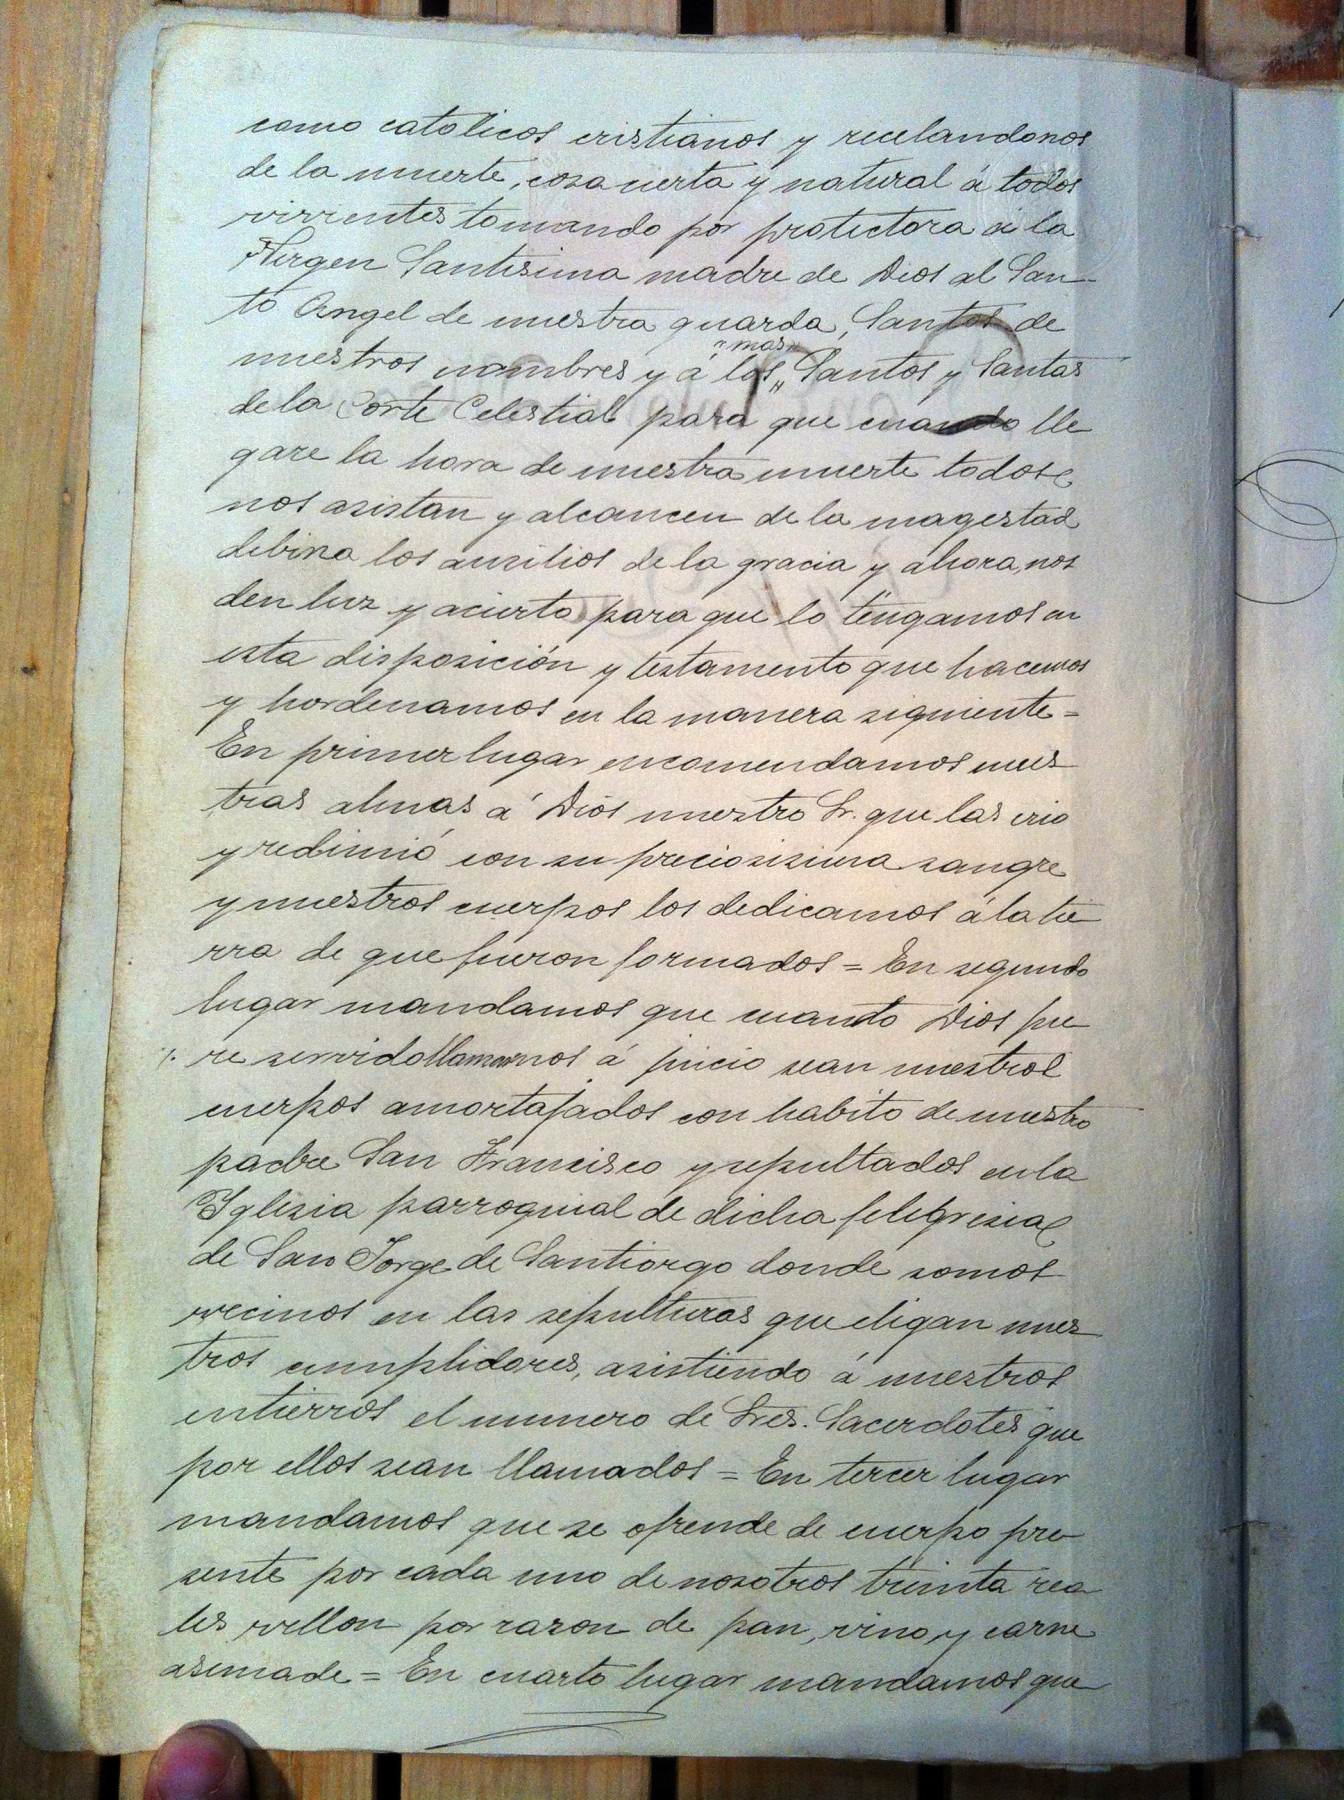 como catolicos cristianos y recelandonos
de la muerte, cosa cierta y natural á todos
vivientes tomando por protectora á la
Virgen Santisima madre de Dios al San-
to Angel de nuestra guarda, Santos de
nuestros nombres y á los "mas" Santos y Santas
de la Corte Celestial para que cuando lle
gare la hora de nuestra muerte todos
nos asistan y alcancen de la magestad
debina los ausilios de la gracia y ahora, nos
den luz y acierto para que lo tengamos en
esta disposición y testamento que hacemos
y hordenamos en la manera siguiente =
En primer lugar encomendamos nues
tras almas á Dios nuestro Sr. que las crio
y redimió con su preciosisima sangre
y nuestros cuerpos los dedicamos á la tie
rra de que fueron formados = En segundo
lugar mandamos que cuando Dios fue
re servido llamarnos á juicio sean nuestros
cuerpos amortajados con habito de nuestro
padre San Francisco y sepultados en la
Iglesia parroquial de dicha feligresia
de San Jorge de Santiorgo donde somos
vecinos en las sepulturas que eligan nues
tros cumplidores, asistiendo á nuestros
entierros el numero de Sres. Sacerdotes que
por ellos sean llamados = En tercer lugar
mandamos que se ofrende de cuerpo pre
sente por cada uno de nosotros treinta rea
les vellon por razon de pan, vino y carne
= En cuarto lugar mandamos que